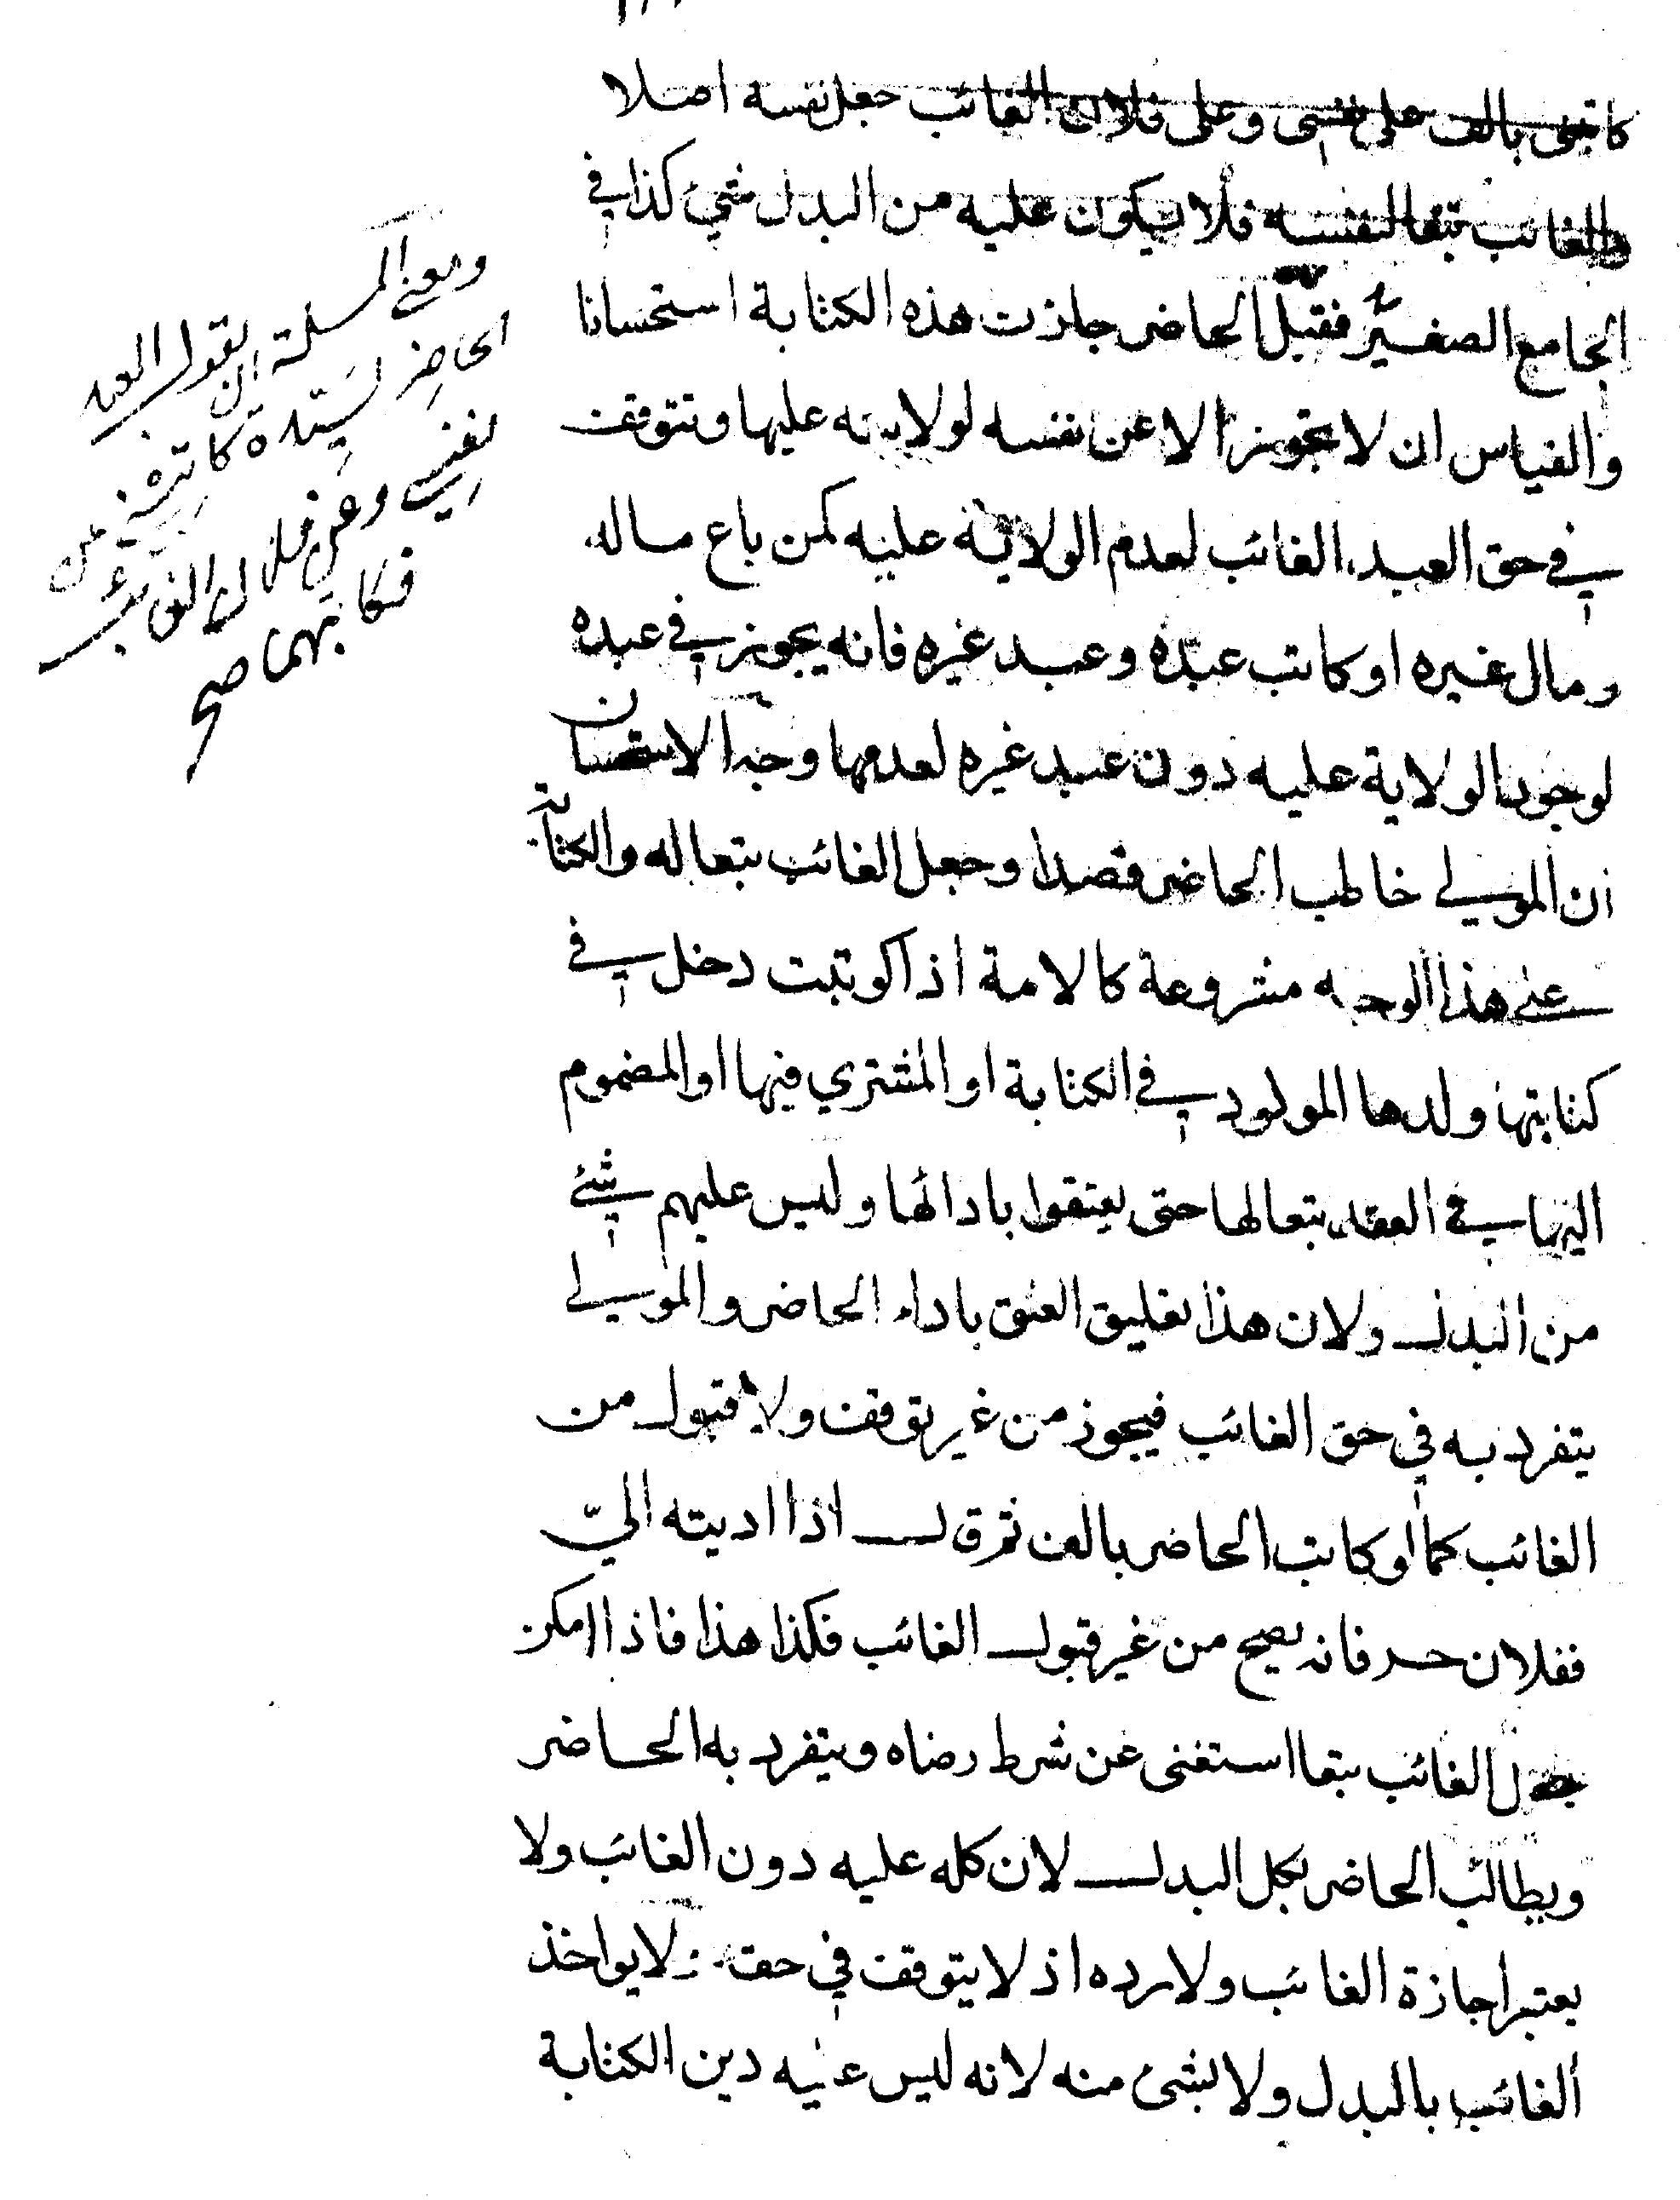 كاتبني بالف على نفسي وعلى فلان الغائب جعل نفسه اصلا
والغائب تبعا لنفسه فلا يكون عليه من البدل شيئ كذا في
الجامع الصغير فقبل الحاضر جازت هذه الكتابة استحسانا
والقياس ان لا يجوز الا عن نفسه لولايته عليها وتتوقف
في حق العبد الغائب لعدم الولاية عليه كمن باع ماله
ومال غيره او كاتب عبده وعبد غيره فانه يجوز في عبده
لوجود الولاية عليه دون عبد غيره لعدمها وجه الاستحسان
ان المولى خاطب الحاضر قصدا وجعل الغائب تبعا له والكتابة
على هذا الوجه مشروعة كالامة اذا كوتبت دخل في
كتابتها ولدها المولود في الكتابة او المشتري فيها او المضموم
اليها في العقد تبعا لها حتى يعتقوا بادائها وليس عليهم شيئ
من البدل ولان هذا تعليق العتق باداء الحاضر والمولى
يتفرد به في حق الغائب فيجوز من غير توقف ولا قبول من
الغائب كما لو كاتب الحاضر بالف ثم قال اذا اديته الي
ففلان حر فانه يصح من غير قبول الغائب فكذا هذا فاذا امكن
جعل الغائب تبعا استغنى عن شرط رضاه ويتفرد به الحاضر
ويطالب الحاضر بكل البدل لان كله عليه دون الغائب ولا
يعتبر اجازة الغائب ولا رده اذ لا يتوقف في حقه ولا يواخذ
الغائب بالبدل ولا بشئ منه لانه ليس عليه دين الكتابة
ومعنى المسئلة ان يقول العبد
الحاضر لسيده كاتبني عن
نفسي وعن فلان الغائب
فكاتبهما صح